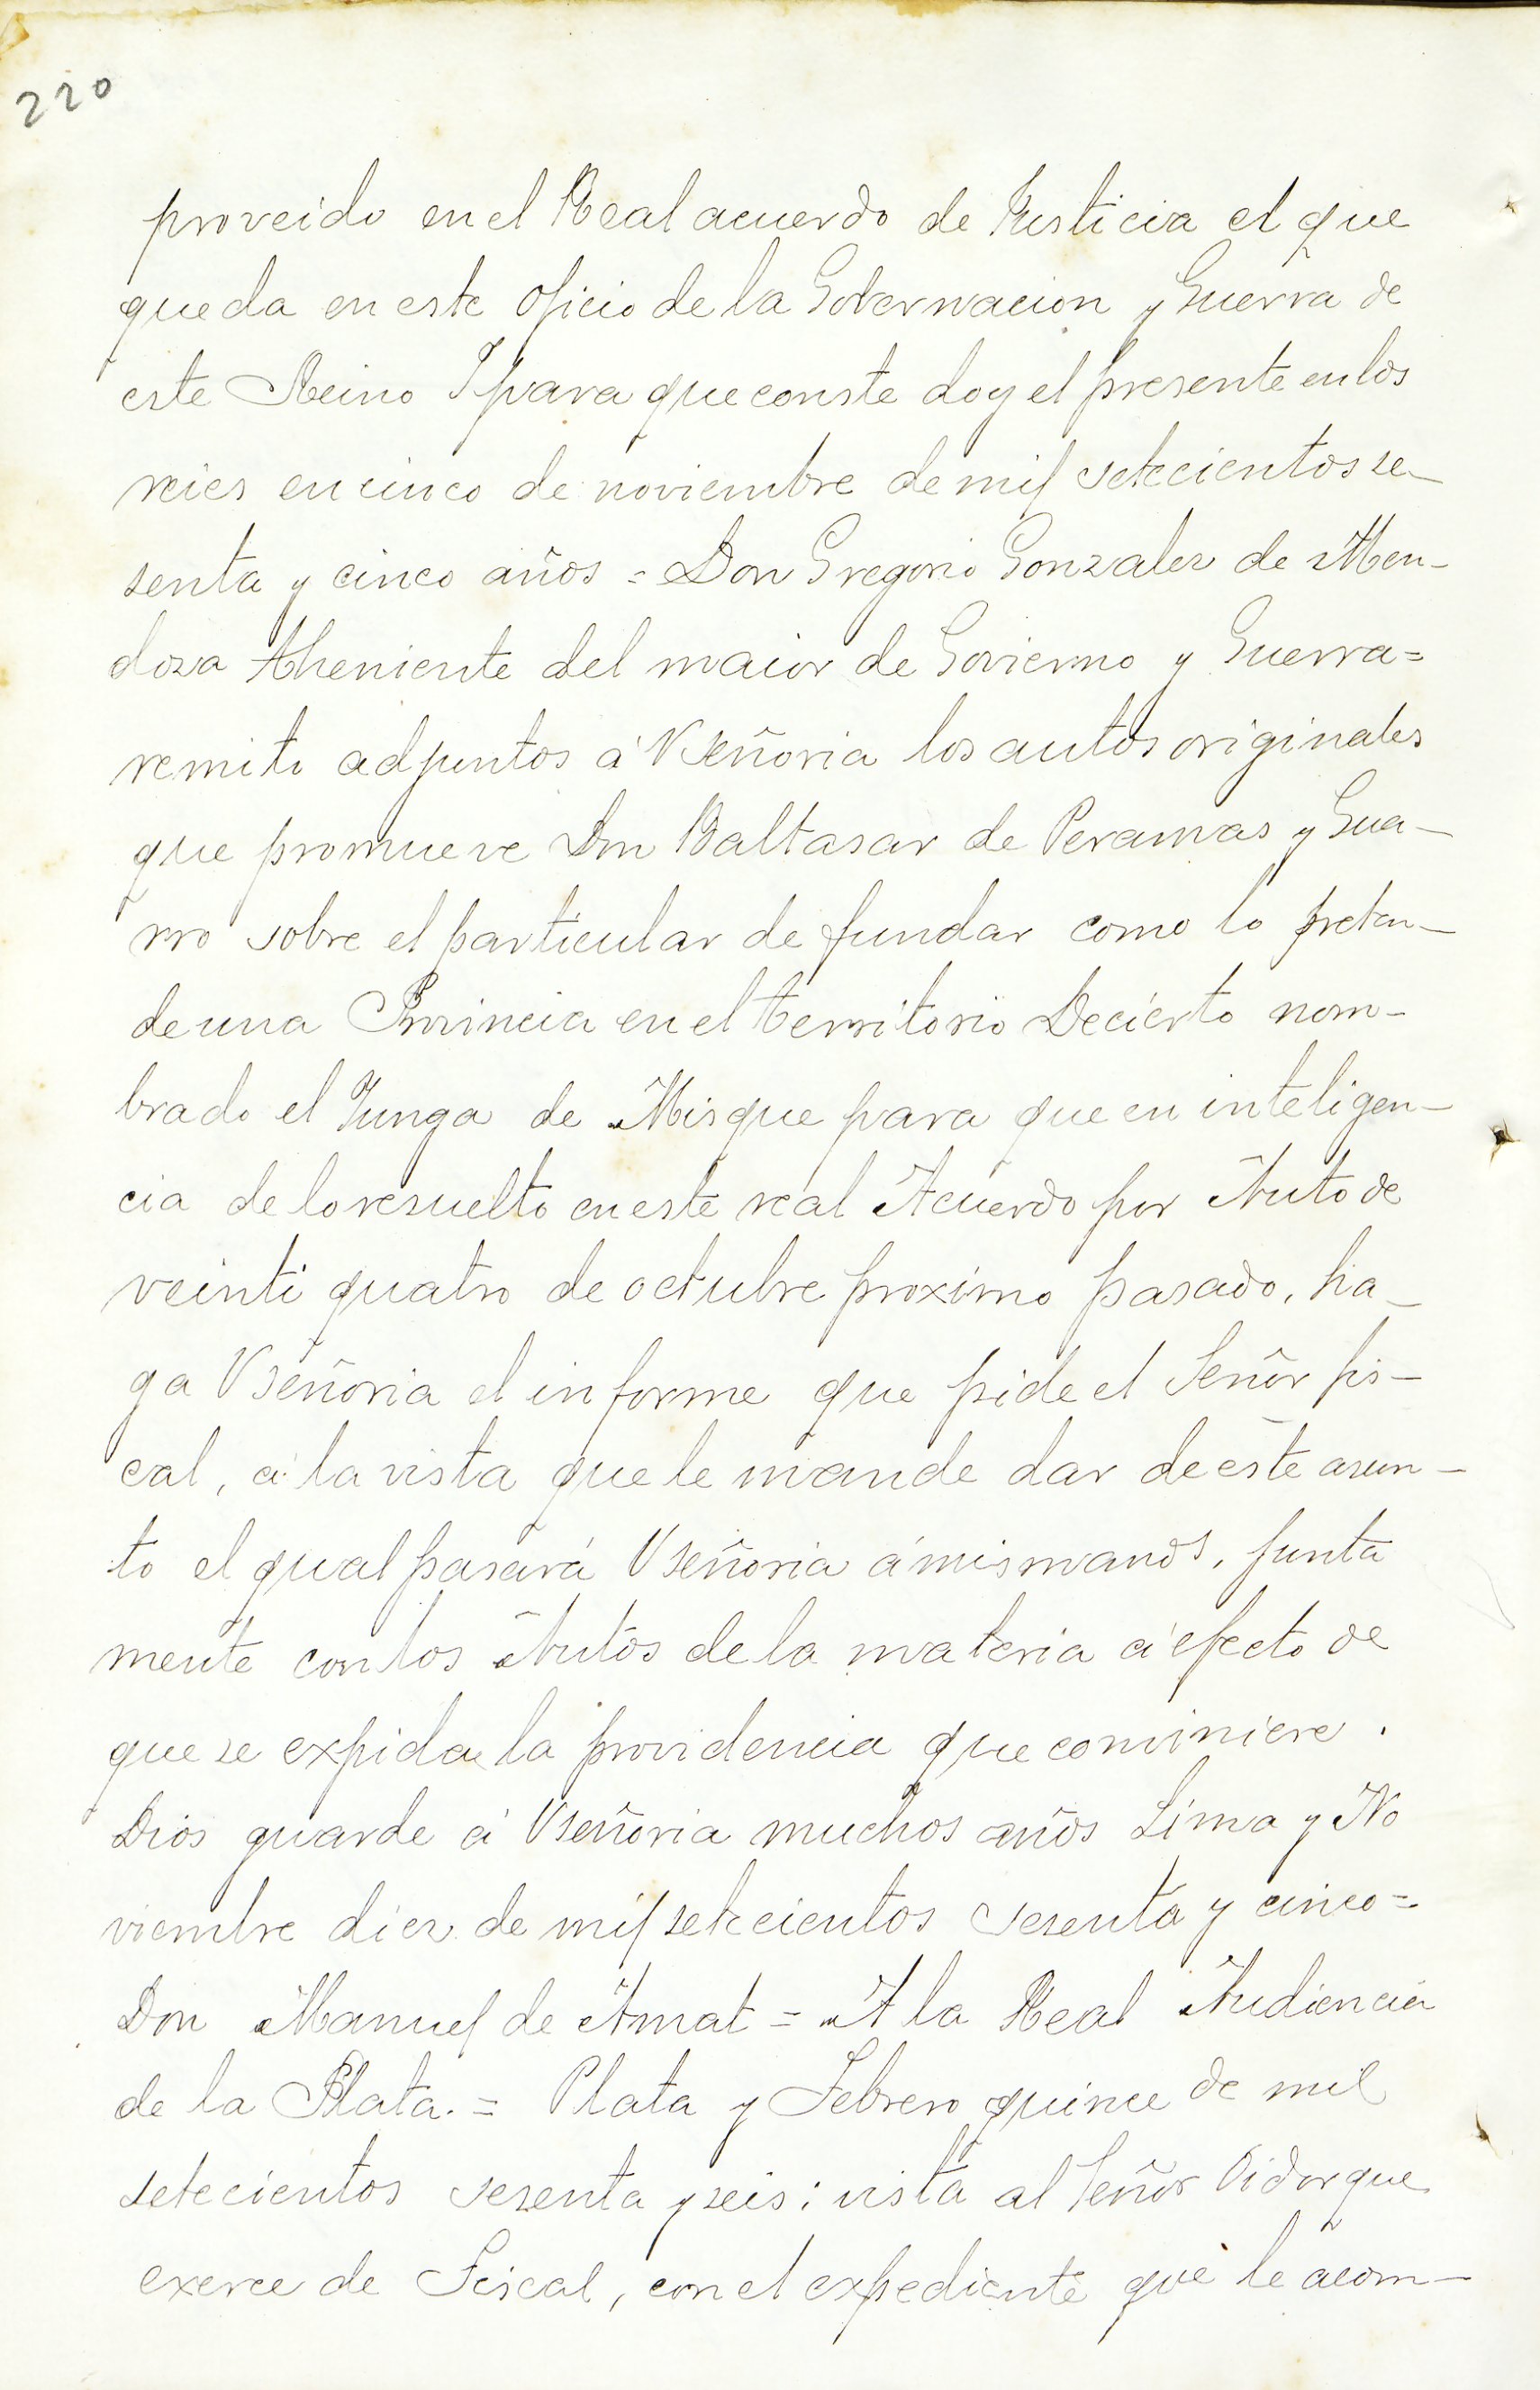 220
proveido en el Real acuerdo de Justicia el que
queda en este oficio de la Gobernacion y Guerra de
este Reino Y para que conste doy el presente en los
reies en cinco de noviembre de mil setecientos se-
senta y cinco años = Don Gregorio Gonzalez de Men-
doza theniente del maior de Govierno y Guerra =
remito adjuntos á Vseñoria los autos originales
que promueve Don Baltasar de Peramas y Gua-
rro sobre el particular de fundar como lo preten-
de una Provincia en el territorio Decierto nom-
brado el Yunga de Misque para que en inteligen-
cia de lo resuelto en este real Acuerdo por Auto de
veinti quatro de octubre proximo pasado, ha-
ga Vseñoria el informe que pide el Señor fis-
cal, á la vista que le mande dar de este asun-
to el qual pasará Vseñoria á mis manos, junta
mente con los Autos de la materia á efecto de
que se expida la providencia que conviniere.
Dios guarde á Vseñoria muchos años Lima y No
viembre diez de mil setecientos sesenta y cinco =
Don Manuel de Amat = A la Real Audiencia
de la Plata. = Plata y Febrero quince de mil
setecientos sesenta y seis: vista al Señor Oidor que
exerce de Fiscal, con el expediente que le acom-